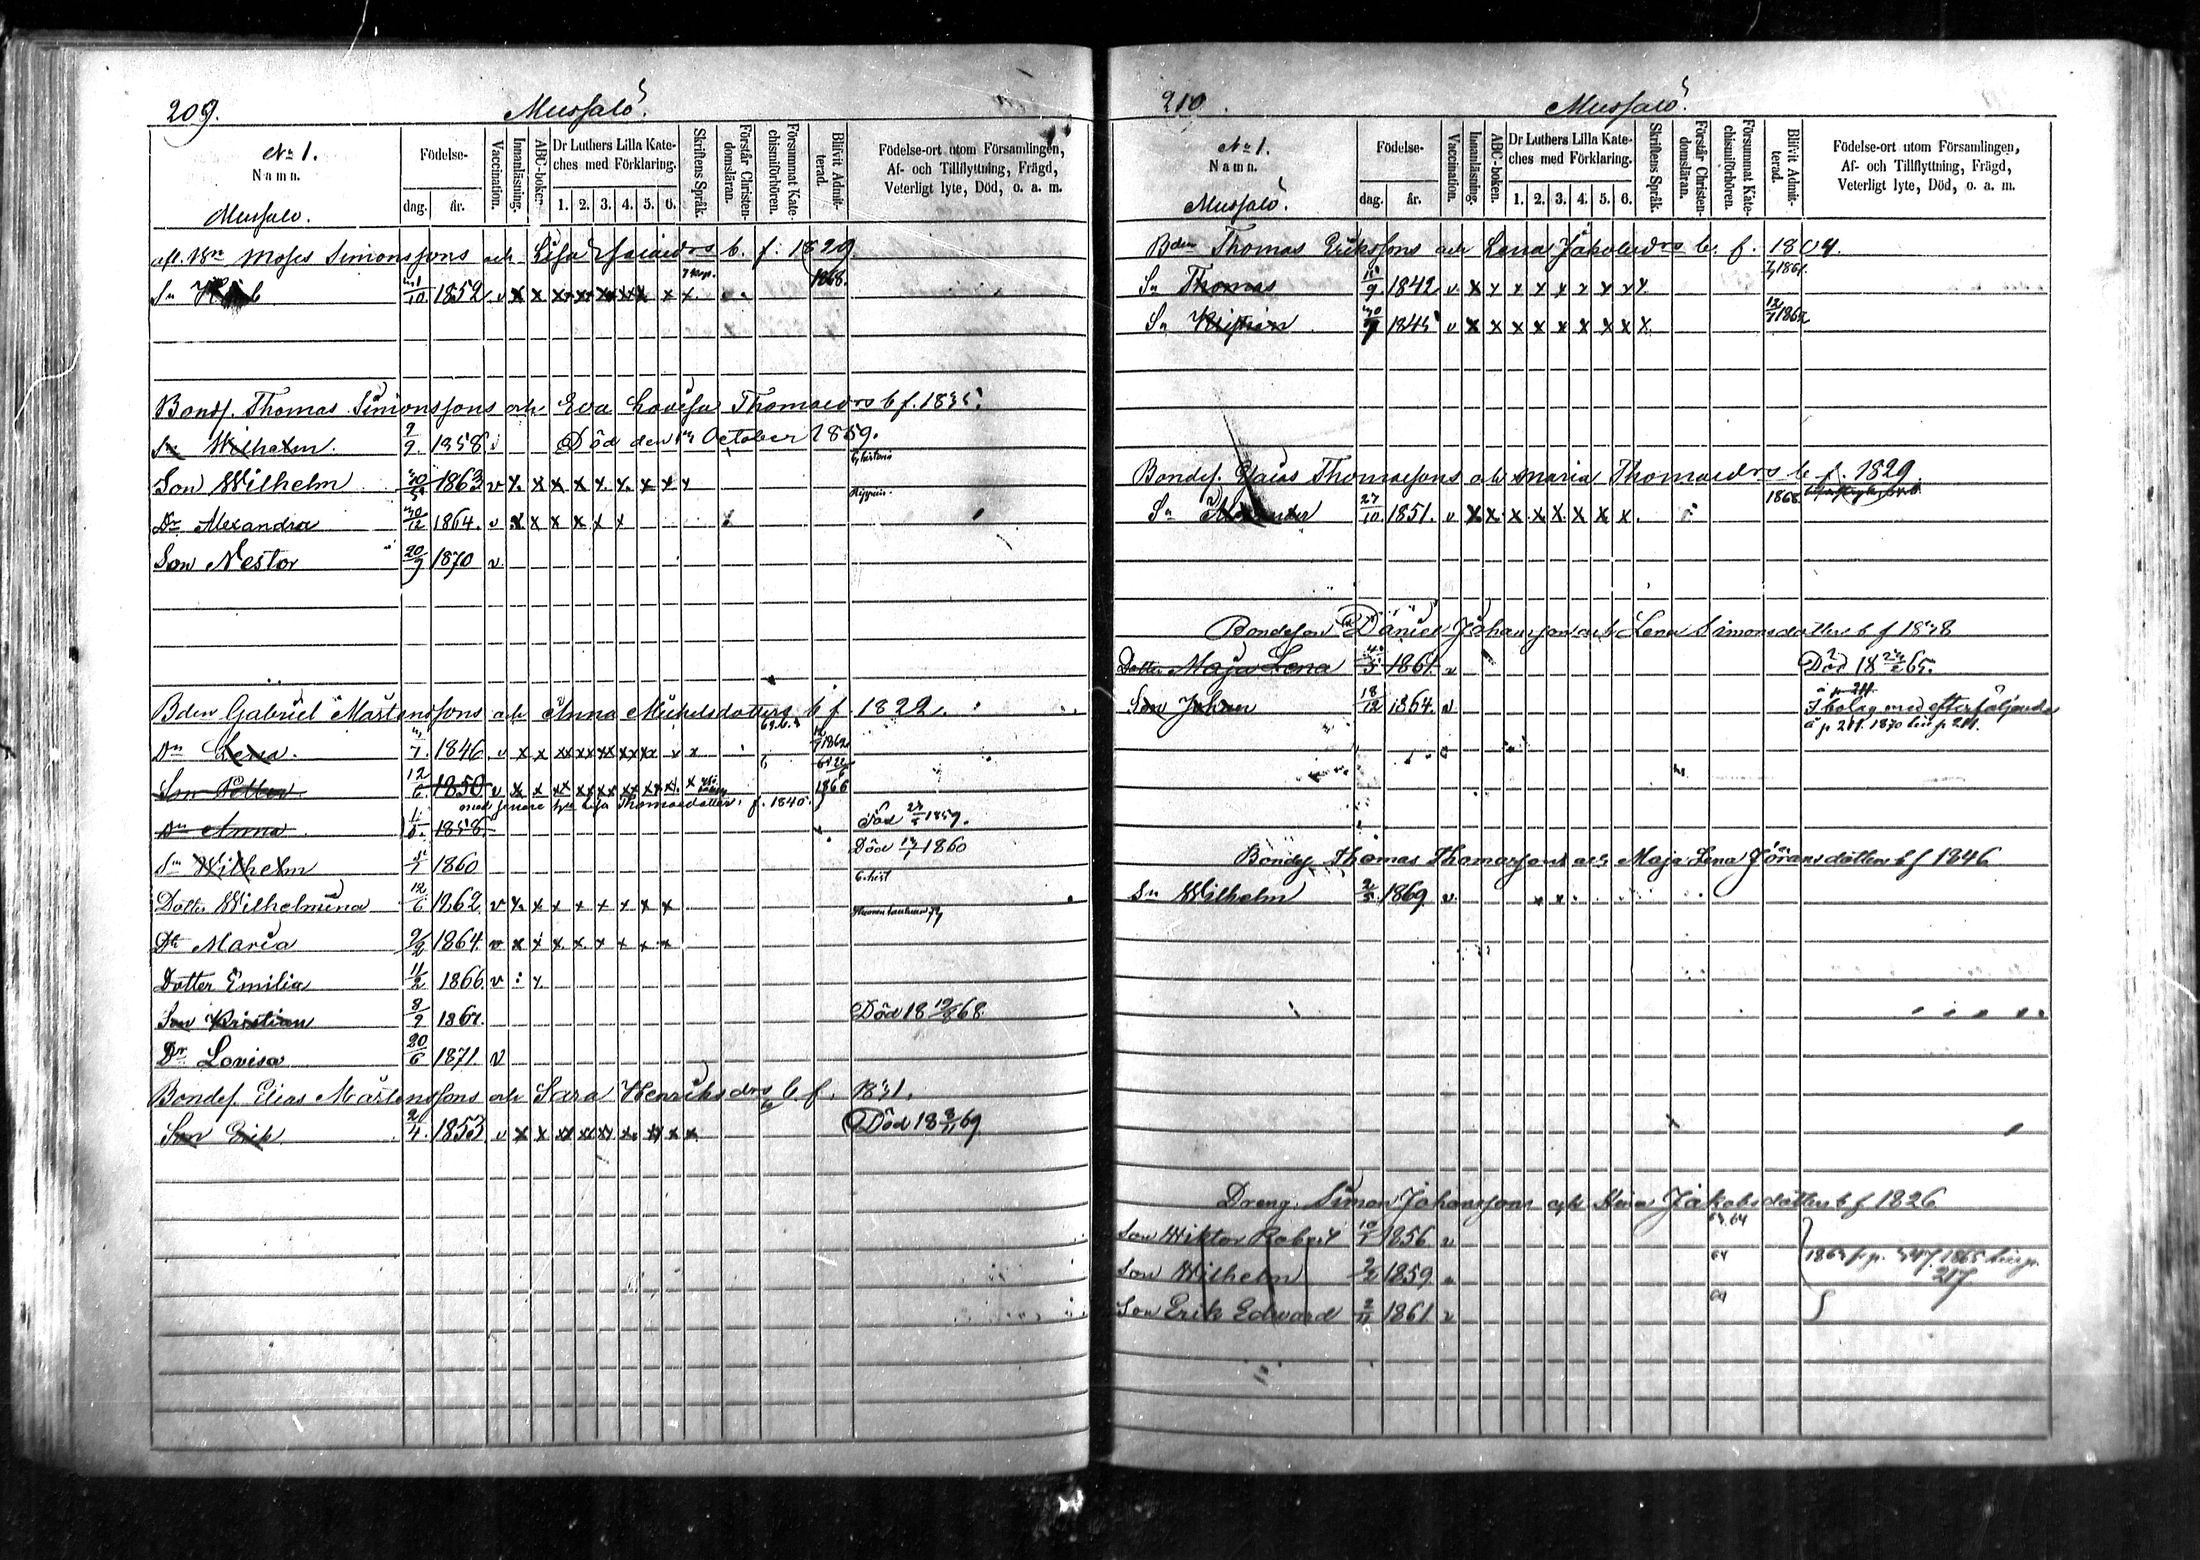 209.
Mussalö.
No 1.
Namn.
Mussalö.
Födelse-
dag.
år.
Vaccination.
Innanläsning.
ABC-boken.
Dr Luthers Lilla Kate-
ches med Förklaring.
1. 2. 3. 4. 5. 6.
Skriftens Språk.
Förstår Christen-
domsläran.
Försummat Kate-
chismiförhören.
Blifvit Admit-
terad.
Födelse-ort utom Församlingen,
Af- och Tillflyttning, Frägd,
Veterligt lyte, Död, o. a. m.
Moses Simonssons och Lisa Esaiædrs b. f. 1829.
Sn 1852 v x x 1868.
Bondes. Thomas Simonssons och Eva Lovisa Thomasdrs b f. 1835.
Sn Wilhelm. 9/9 1858 Död den October 1859.
Son Wilhelm 1863 v x x x x x x x
Dr Alexandra 30/12 1864. v x x x x x x
Son Nestor 20/9 1870 v.
Bden Gabriel Mårtenssons och Anna Michelsdotters b f. 1822.
Dn Lena. 1846 v x x xx xx xx xx xx x x 1862
Son Petter 12/6 1850 v x x xx xx xx xx xx xx x 1866
Lisa Thomasdotter f. 1840.
Dn Anna 1858. Död 1859.
Sn Wilhelm 1860 Död 1860
Dotter Wilhelmina 12/6 1862 v x x x x x x x x
Dtr Maria 9/2 1864. v x x x x x x x x
Dotter Emilia 11/2 1866 v
Son Kristian 8/9 1867. Död 18 68.
Dr Lovisa 20/6 1871 v
Bondes. Elias Mårtenssons och Sara Henriksdrs b f. 1831.
Son Erik 2/4 1853 v x x xx xx xx x. xx x x Död 18 69
210.
Mussalö.
No 1.
Namn.
Mussalö.
Födelse-
dag.
år.
Vaccination.
Innanläsning.
ABC-boken.
Dr Luthers Lilla Kate-
ches med Förklaring.
1. 2. 3. 4. 5. 6.
Skriftens Språk.
Förstår Christen-
domsläran.
Försummat Kate-
chismiförhören.
Blifvit Admit-
terad.
Födelse-ort utom Församlingen,
Af- och Tillflyttning, Frägd,
Veterligt lyte, Död, o. a. m.
Bden Thomas Erikssons och Lena Jakobsdrs b. f. 1804.
Sn Thomas 1842 v. x x x x x x x x x 1861.
Sn Kristian 1845 v x x x x x x x x x 1862
Bondes. Esaias Thomassons och Maria Thomasdrs b f. 1829
Sn Alexander 27/10 1851. v x x x x x x x x. 1868
Bondeson Daniel Johansson och Lena Simonsdotters b f 1838
Dotter Maja Lena 1861. v Död 18 65.
Son Johan 18/12 1864. v I bolag med efterföljande
å p 211. 1870 p 211.
Bondes Thomas Thomassons och Maja Lena Jöransdotters b f 1846
Sn Wilhelm 1869 v. x x
Dreng. Simon Johanssons och Stina Jakobsdotters b f 1826
Son Wiktor Robert 1856 v 63.64
Son Wilhelm 2/2 1859 v 64 1865
217
Son Erik Edward 2/11 1861 v 64